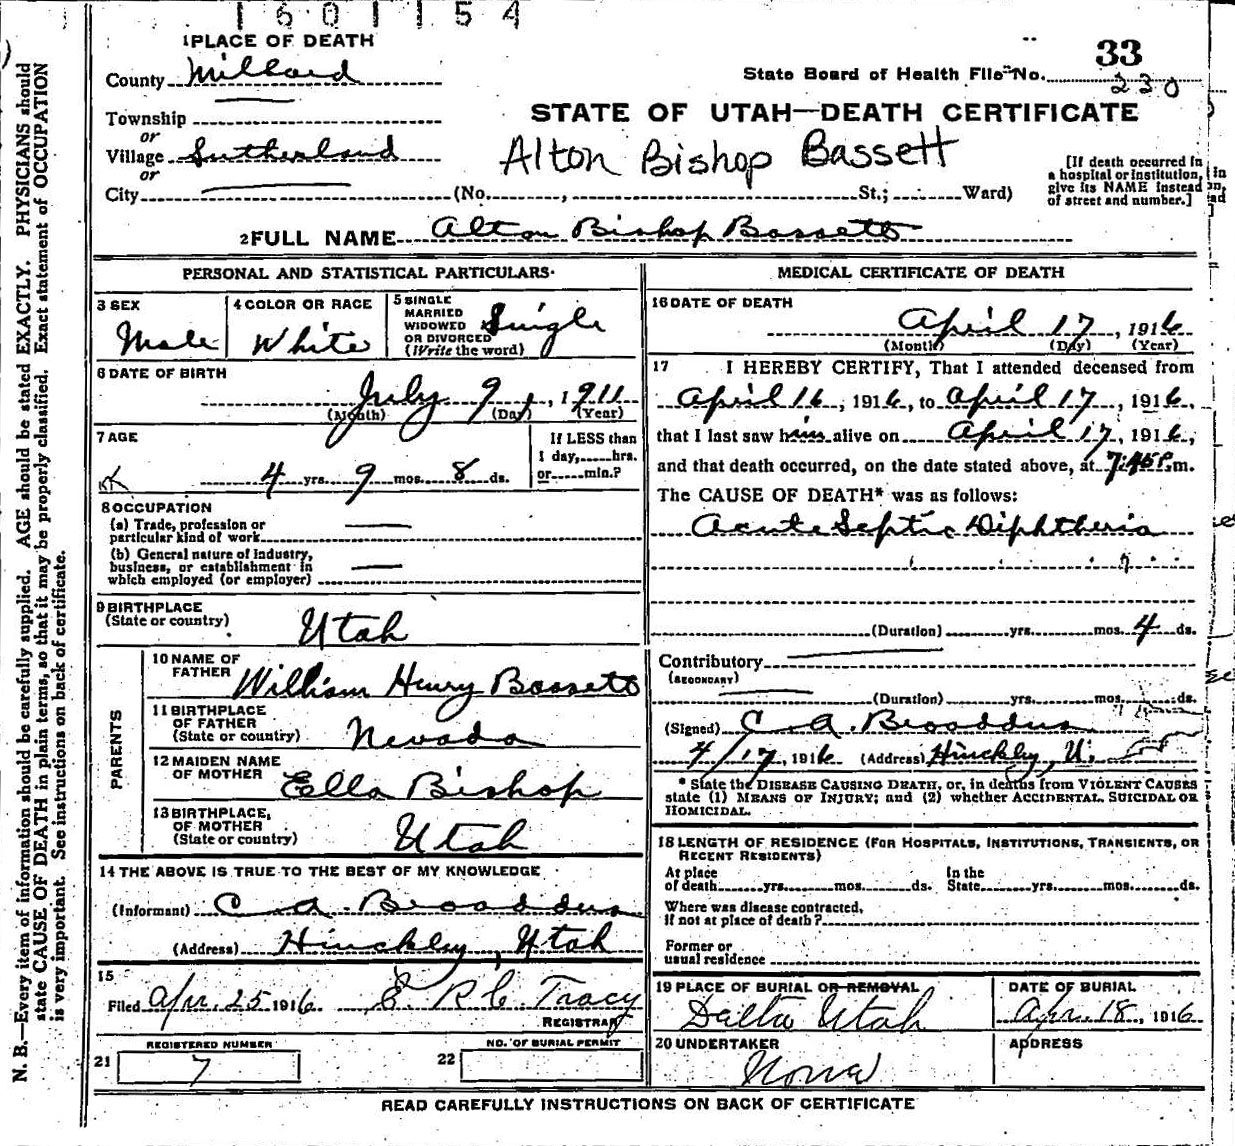 1601154
1 PLACE OF DEATH
33
County Millard
State Board of Health File No. 230
Township
STATE OF UTAH—DEATH CERTIFICATE
or
Village Sutherland
Alton Bishop Bassett
or
City (No. , St.; Ward)
[If death occurred in a hospital or institution, give its NAME instead of street and number.]
2 FULL NAME Alton Bishop Bassett
PERSONAL AND STATISTICAL PARTICULARS
3 SEX
Male
4 COLOR OR RACE
White
5 SINGLE
MARRIED
WIDOWED
OR DIVORCED
(Write the word)
Single
6 DATE OF BIRTH
July 9, 1911
(Month) (Day) (Year)
7 AGE
4 yrs. 9 mos. 8 ds.
If LESS than
1 day, hrs.
or min.?
8 OCCUPATION
(a) Trade, profession or
particular kind of work
(b) General nature of industry,
business, or establishment in
which employed (or employer)
9 BIRTHPLACE
(State or country)
Utah
PARENTS
10 NAME OF
FATHER
William Henry Bassett
11 BIRTHPLACE
OF FATHER
(State or country)
Nevada
12 MAIDEN NAME
OF MOTHER
Ella Bishop
13 BIRTHPLACE,
OF MOTHER
(State or country)
Utah
14 THE ABOVE IS TRUE TO THE BEST OF MY KNOWLEDGE
(Informant) C A. Broaddus
(Address) Hinckley, Utah
15
Filed Apr. 25 1916 E. R C. Tracy
REGISTRAR
21
REGISTERED NUMBER
7
22
NO. OF BURIAL PERMIT
MEDICAL CERTIFICATE OF DEATH
16 DATE OF DEATH
April 17, 1916
(Month) (Day) (Year)
17 I HEREBY CERTIFY, That I attended deceased from
April 16, 1916, to April 17, 1916,
that I last saw him alive on April 17, 1916,
and that death occurred, on the date stated above, at 7:45 P.m.
The CAUSE OF DEATH* was as follows:
Acute Septic Diphtheria
(Duration) yrs. mos. 4 ds.
Contributory
(SECONDARY)
(Duration) yrs. mos. ds.
(Signed) C. A. Broaddus
4/17, 1916 (Address) Hinckley, U.
* State the DISEASE CAUSING DEATH, or, in deaths from VIOLENT CAUSES
state (1) MEANS OF INJURY; and (2) whether ACCIDENTAL, SUICIDAL OR
HOMICIDAL.
18 LENGTH OF RESIDENCE (FOR HOSPITALS, INSTITUTIONS, TRANSIENTS, OR
RECENT RESIDENTS)
At place
of death yrs. mos. ds.
In the
State yrs. mos. ds.
Where was disease contracted,
if not at place of death?
Former or
usual residence
19 PLACE OF BURIAL OR REMOVAL
Delta Utah
DATE OF BURIAL
Apr. 18, 1916
20 UNDERTAKER
None
ADDRESS
READ CAREFULLY INSTRUCTIONS ON BACK OF CERTIFICATE
N. B.—Every item of information should be carefully supplied. AGE should be stated EXACTLY. PHYSICIANS should
state CAUSE OF DEATH in plain terms, so that it may be properly classified. Exact statement of OCCUPATION
is very important. See instructions on back of certificate.